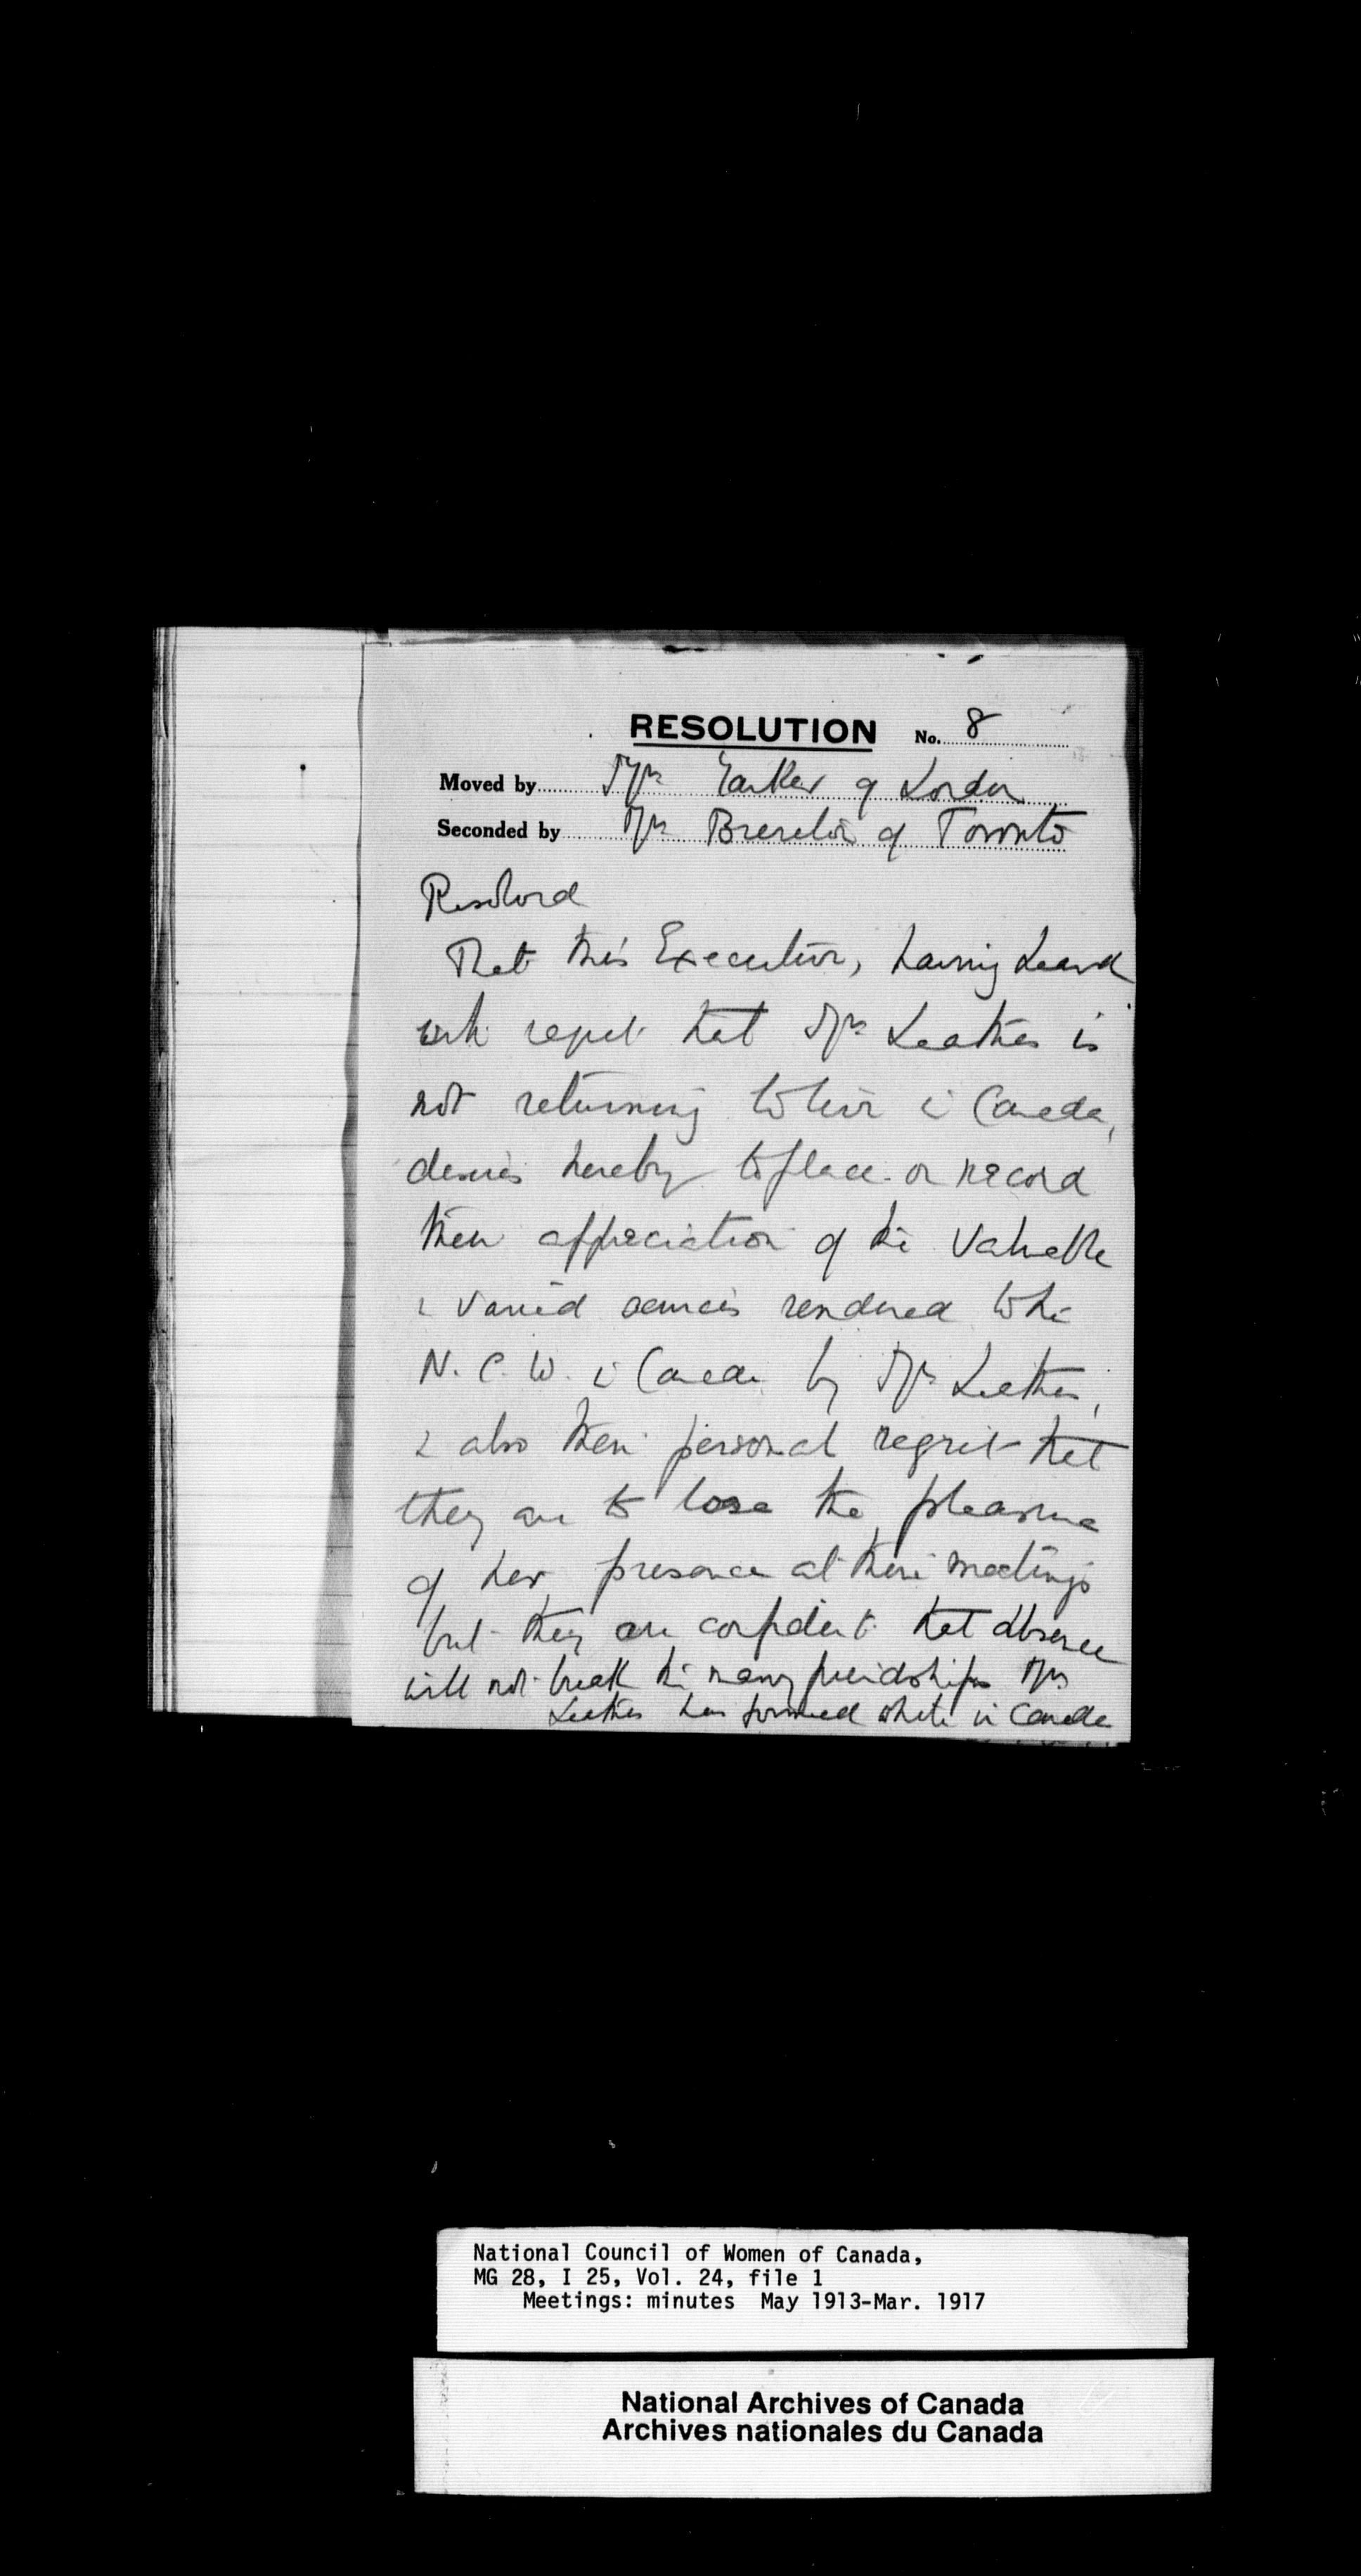 RESOLUTION No. 8
Moved by Mrs Yarker of London
Seconded by Mrs Brereton of Toronto
Resolved
That this Executive, having heard
with regret that Mrs Leathes is
not returning to live in Canada,
desires hereby to place on record
their appreciation of the valuable
& varied services rendered to the
N. C. W. in Canada by Mrs Leathes,
& also their personal regret that
they are to lose the pleasure
of her presence at their meetings
but they are confident that absence
will not break the many friendships Mrs
Leathes has formed while in Canada
National Council of Women of Canada,
MG 28, I 25, Vol. 24, file 1
Meetings: minutes May 1913-Mar. 1917
National Archives of Canada
Archives nationales du Canada